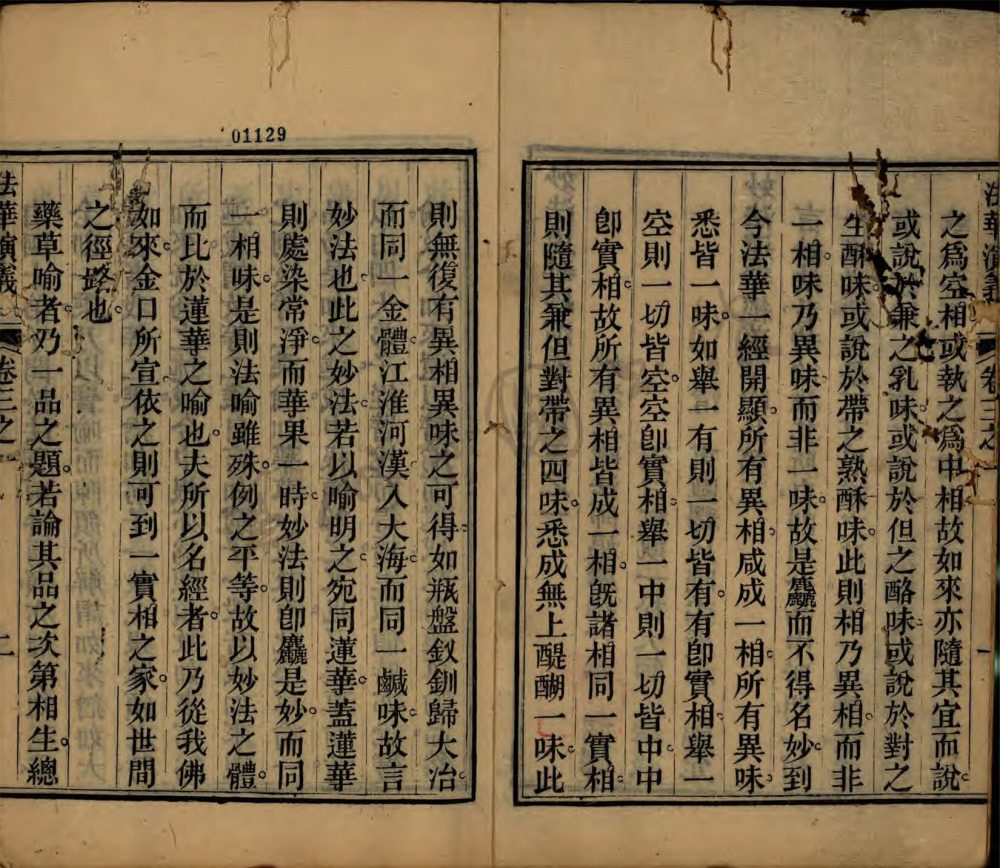 之爲空相或執之爲中相故如來亦隨其宜而說
或說於兼之乳味或說於但之酪味或說於對之
生酥味或說於帶之熟酥味此則相乃異相而非
一相味乃異味而非一味故是麤而不得名妙到
今法華一經開顯所有異相咸成一相所有異味
悉皆一味如舉一有則一切皆有有卽實相舉一
空則一切皆空空卽實相舉一中則一切皆中中
卽實相故所有異相皆成一相旣諸相同一實相
則隨其兼但對帶之四味悉成無上醍醐一味此
01129
則無復有異相異味之可得如瓶盤釵釧歸大冶
而同一金體江淮河漢入大海而同一鹹味故言
妙法也此之妙法若以喻明之宛同蓮華蓋蓮華
則處染常淨而華果一時妙法則卽麤是妙而同
一相味是則法喻雖殊例之平等故以妙法之體
而比於蓮華之喻也夫所以名經者此乃從我佛
如來金口所宣依之則可到一實相之家如世間
之徑路也
藥草喻者乃一品之題若論其品之次第相生總
法華演義 卷三之一 二